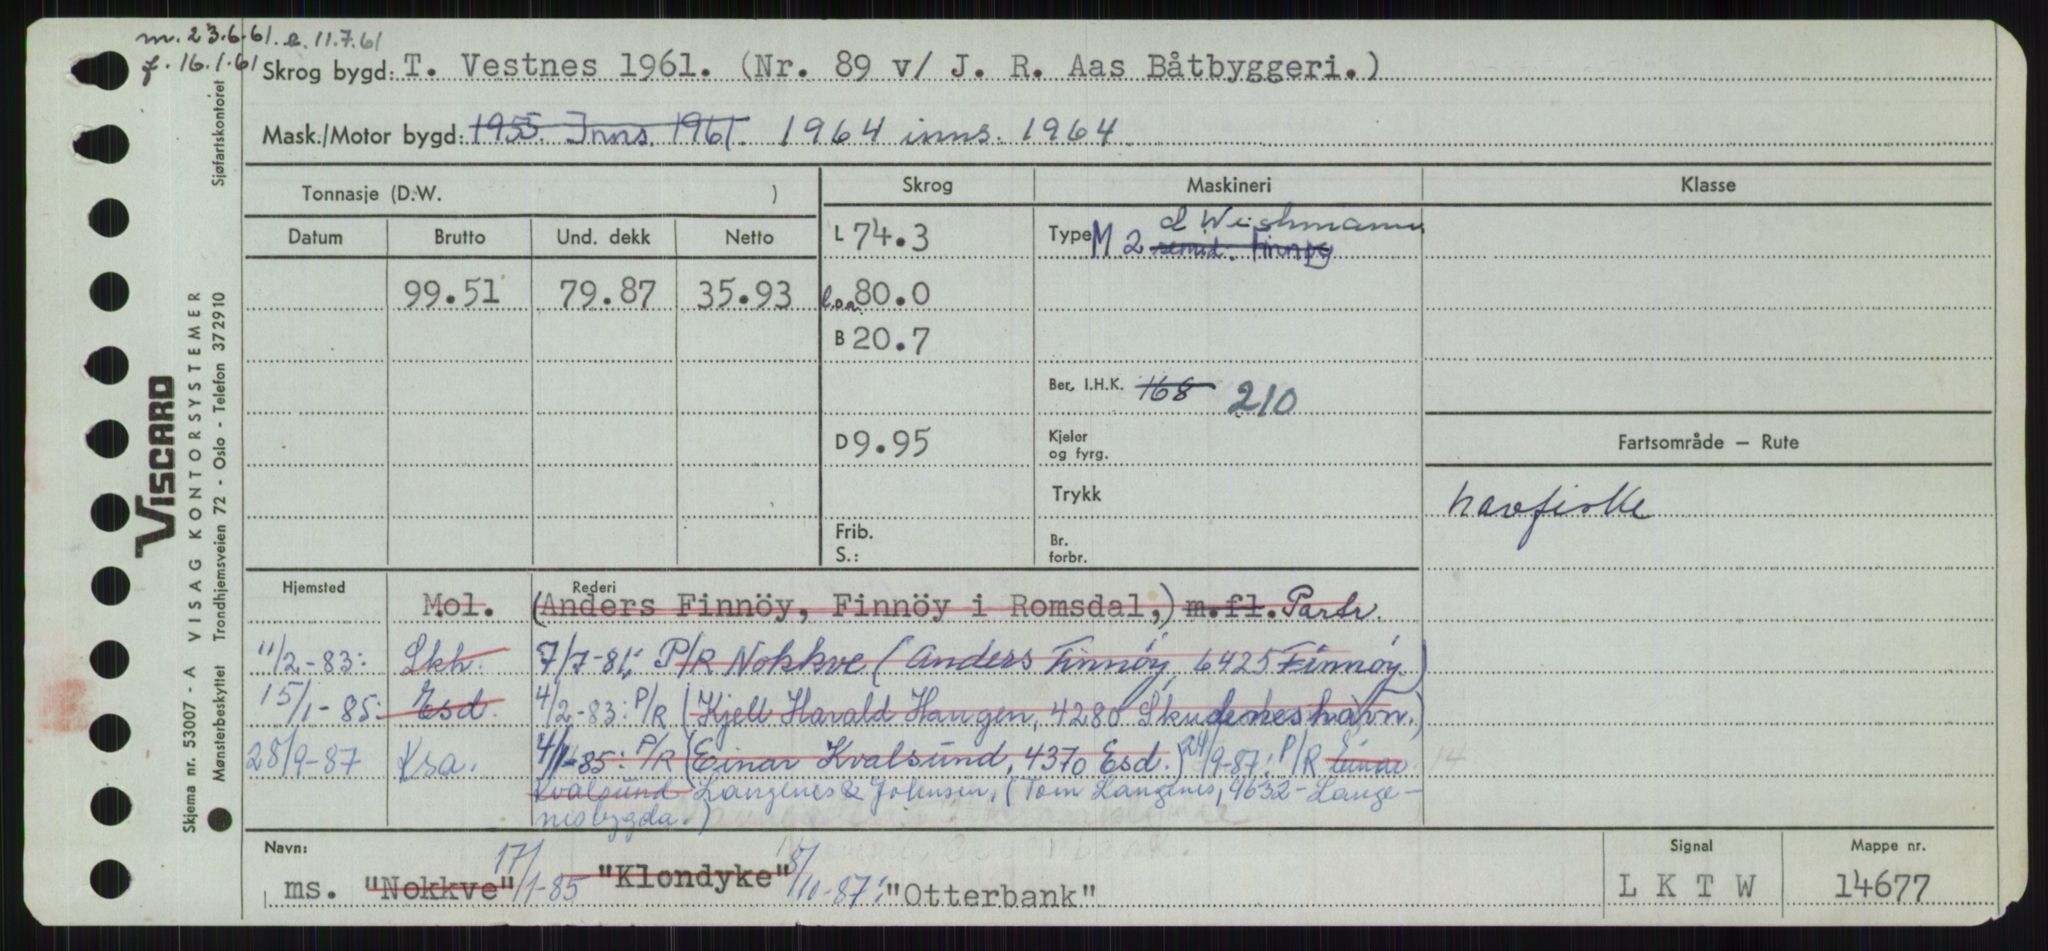 m. 23.6.61. e. 11.7.61
f. 16.1.61
Skrog bygd: T. Vestnes 1961. (Nr. 89 v/ J. R. Aas Båtbyggeri.)
Mask./Motor bygd: 1955. Inns. 1961. 1964 inns. 1964
Sjøfartskontoret
Tonnasje (D.W. )
Skrog
Maskineri
Klasse
Datum Brutto Und. dekk Netto
L 74.3
Type M 2 d Wichmann
semid. Finnøy
99.51 79.87 35.93
l.o.a. 80.0
B 20.7
Ber. I.H.K. 168 210
D 9.95
Kjeler
og fyrg.
Fartsområde — Rute
Trykk
havfiske
Frib.
S.:
Br.
forbr.
Hjemsted
Rederi
Mol. (Anders Finnöy, Finnöy i Romsdal,) m.fl. Partr.
11/2-83: Skh. 7/7-81: P/R Nokkve (Anders Finnöy, 6425 Finnöy.)
15/1-85: Esd. 4/2-83: P/R (Kjell Harald Haugen, 4280 Skudeneshavn.)
28/9-87 Ksa. 4/1-85: P/R (Einar Kvalsund, 4370 Esd.) 24/9-87: P/R Einar
Kvalsund Langenes & Johnsen, (Tom Langenes, 4632-Lange-
nesbygda.)
Navn:
ms. "Nokkve" 17/1-85 "Klondyke" 8/10-87: "Otterbank"
Signal
L K T W
Mappe nr.
14677
VISCARD
VISAG KONTORSYSTEMER
Skjema nr. 53007 - A
Mønsterbeskyttet Trondhjemsveien 72 - Oslo - Telefon 372910